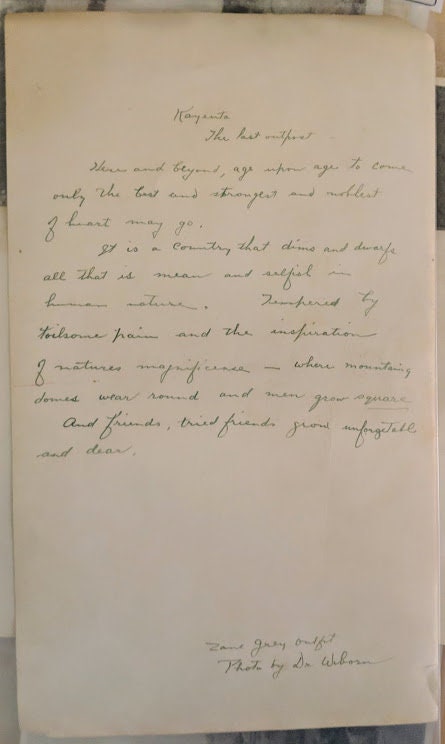 Kayenta
The last outpost -
Here and beyond, age upon age to come
only the best and strongest and noblest
of heart may go.
It is a country that dims and dwarfs
all that is mean and selfish in
human nature. Tempered by
toilsome pain and the inspiration
of natures magnificense — where mountains
domes wear round and men grow square
And friends, tried friends grow unforgetable
and dear.
Zane Grey outfit
Photo by Dr